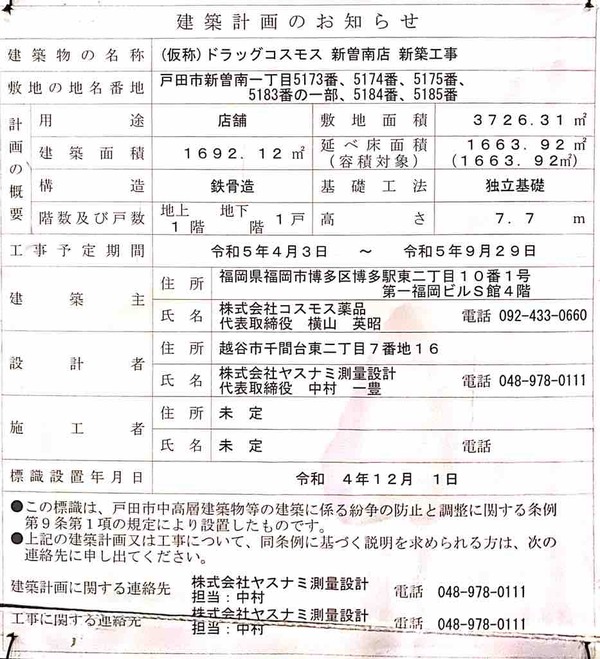 建築計画のお知らせ
建築物の名称 (仮称)ドラッグコスモス 新曽南店 新築工事
敷地の地名番地 戸田市新曽南一丁目5173番、5174番、5175番、
5183番の一部、5184番、5185番
計画の概要
用途 店舗 敷地面積 3726.31㎡
建築面積 1692.12㎡ 延べ床面積 1663.92㎡
(容積対象) (1663.92㎡)
構造 鉄骨造 基礎工法 独立基礎
階数及び戸数 地上 1階 地下 階 1戸 高さ 7.7 m
工事予定期間 令和5年4月3日 ～ 令和5年9月29日
建築主 住所 福岡県福岡市博多区博多駅東二丁目10番1号
第一福岡ビルS館4階
氏名 株式会社コスモス薬品
代表取締役 横山 英昭 電話 092-433-0660
設計者 住所 越谷市千間台東二丁目7番地16
氏名 株式会社ヤスナミ測量設計
代表取締役 中村 一豊 電話 048-978-0111
施工者 住所 未定
氏名 未定 電話
標識設置年月日 令和 4年12月 1日
●この標識は、戸田市中高層建築物等の建築に係る紛争の防止と調整に関する条例
第9条第1項の規定により設置したものです。
●上記の建築計画又は工事について、同条例に基づく説明を求められる方は、次の
連絡先に申し出てください。
建築計画に関する連絡先 株式会社ヤスナミ測量設計
担当：中村 電話 048-978-0111
工事に関する連絡先 株式会社ヤスナミ測量設計
担当：中村 電話 048-978-0111